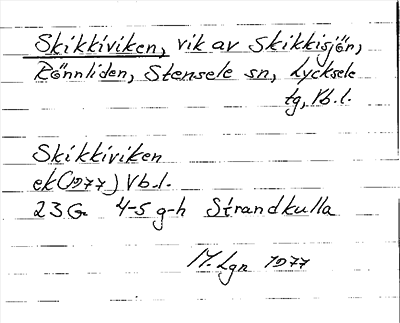 Skikkiviken, vik av Skikkisjön,
Rönnliden, Stensele sn, Lycksele
tg, Vb.l.
Skikkiviken
ek(1977) Vb.l.
23G 4-5 g-h Strandkulla
M.Lgn 1977